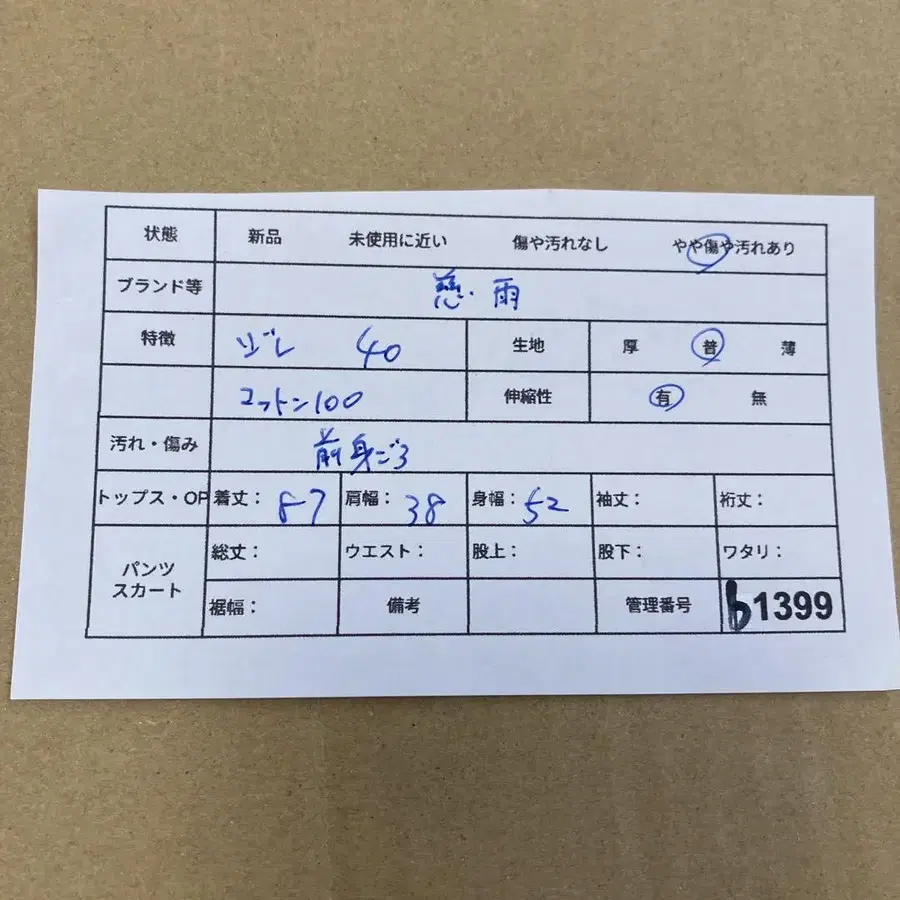 状態 新品 未使用に近い 傷や汚れなし やや傷や汚れあり
ブランド等 慈雨
特徴 ソデレ 40 生地 厚 普 薄
コットン100 伸縮性 有 無
汚れ・傷み 前身ごろ
トップス・OP 着丈： 87 肩幅： 38 身幅： 52 袖丈： 裄丈：
パンツ スカート 総丈： ウエスト： 股上： 股下： ワタリ：
裾幅： 備考 管理番号 b1399